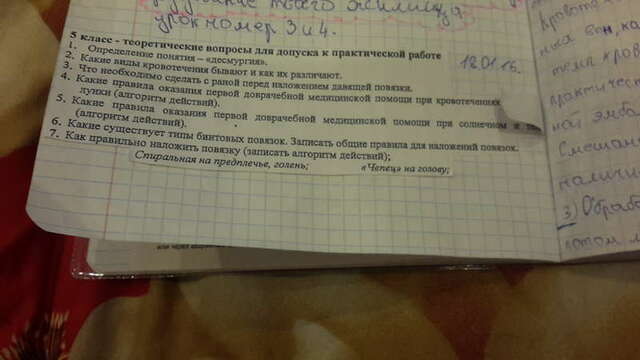 твоего жилища
урок номер 3 и 4.
5 класс - теоретические вопросы для допуска к практической работе
18.01.16.
1. Определение понятия – «десмургия».
2. Какие виды кровотечения бывают и как их различают.
3. Что необходимо сделать с раной перед наложением давящей повязки.
4. Какие правила оказания первой доврачебной медицинской помощи при кровотечениях
лунки (алгоритм действий).
5. Какие правила оказания первой доврачебной медицинской помощи при солнечном и
(алгоритм действий).
6. Какие существует типы бинтовых повязок. Записать общие правила для наложений повязок.
7. Как правильно наложить повязку (записать алгоритм действий);
Спиральная на предплечье, голень; «Чепец» на голову;
или через
3) Обрабо
потом